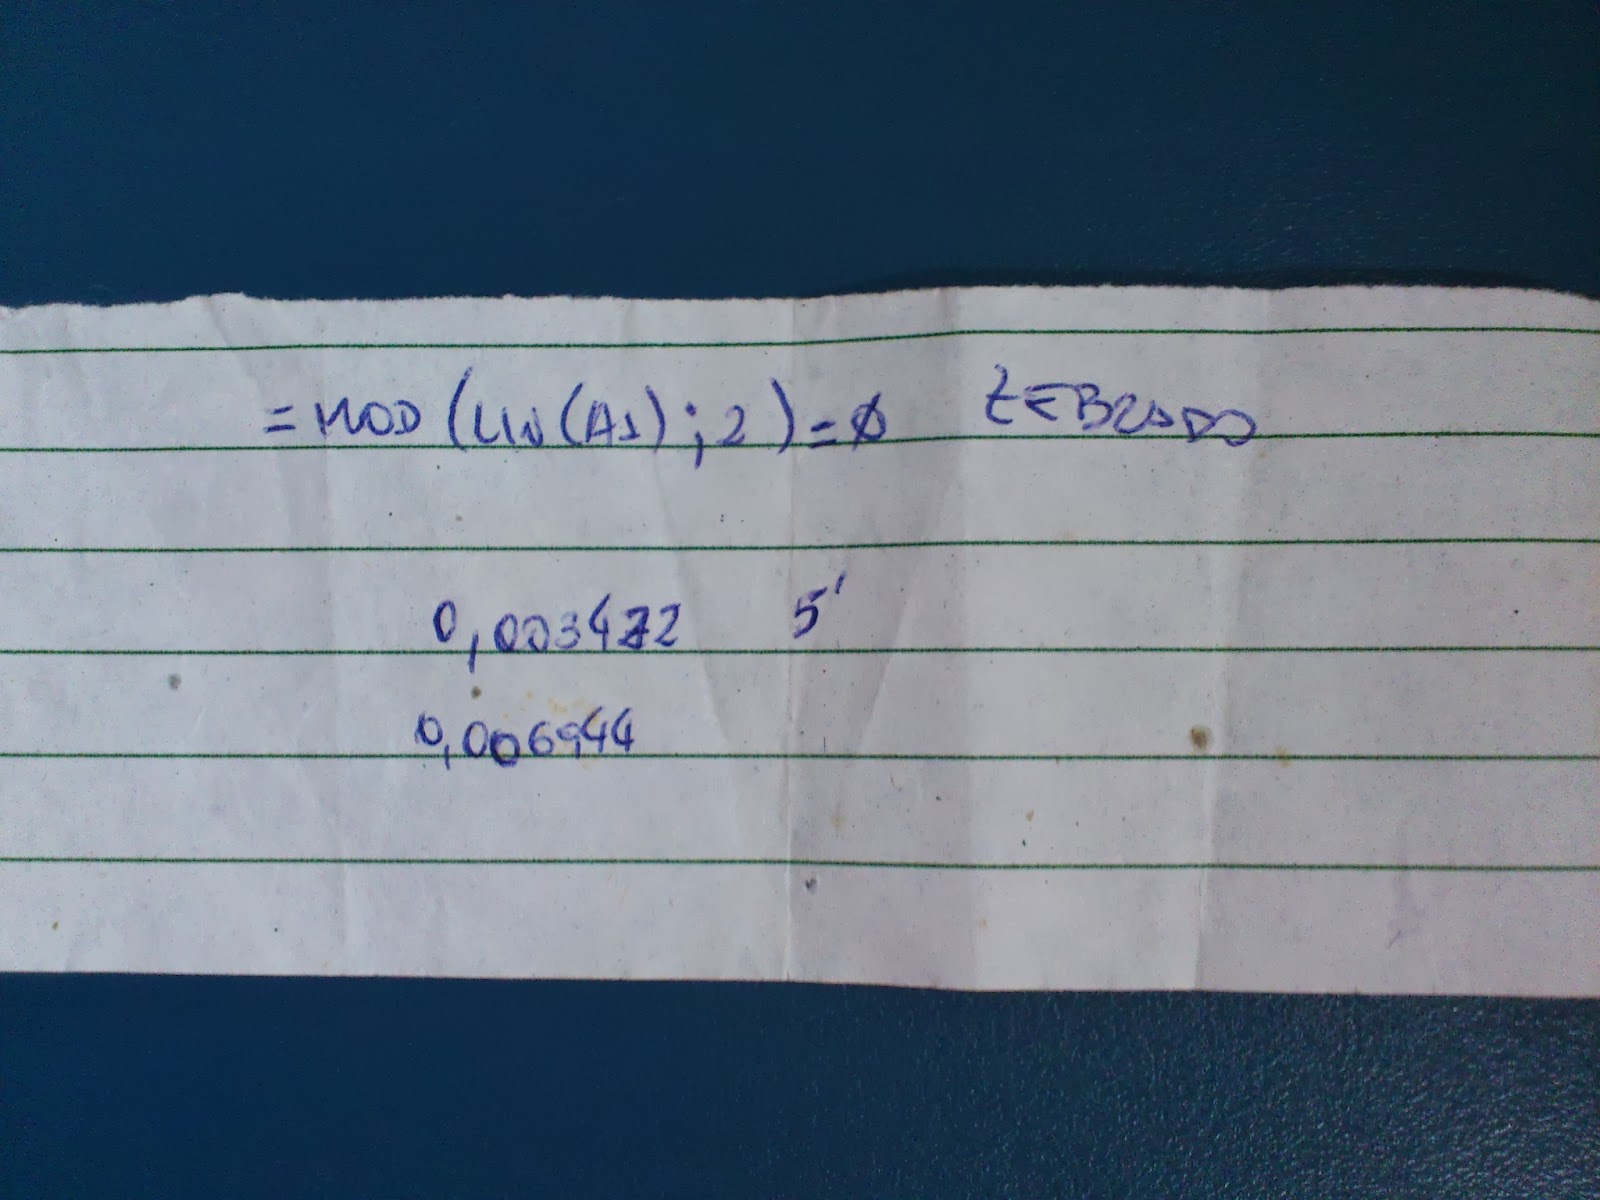 =MOD(LIN(A1);2)=0 ZEBRADO
0,003472 5'
0,006944